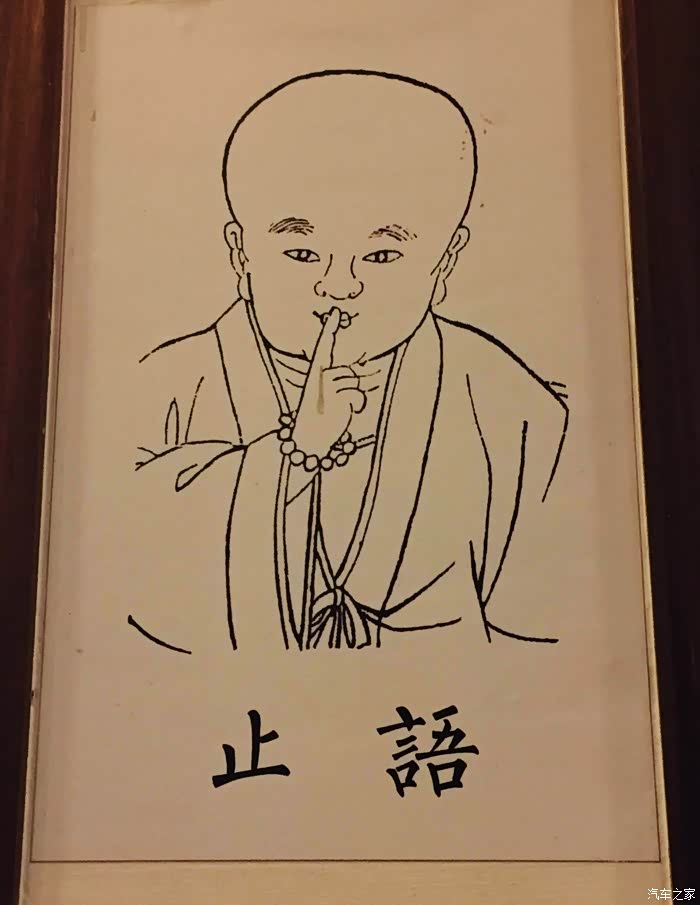 止語
汽车之家